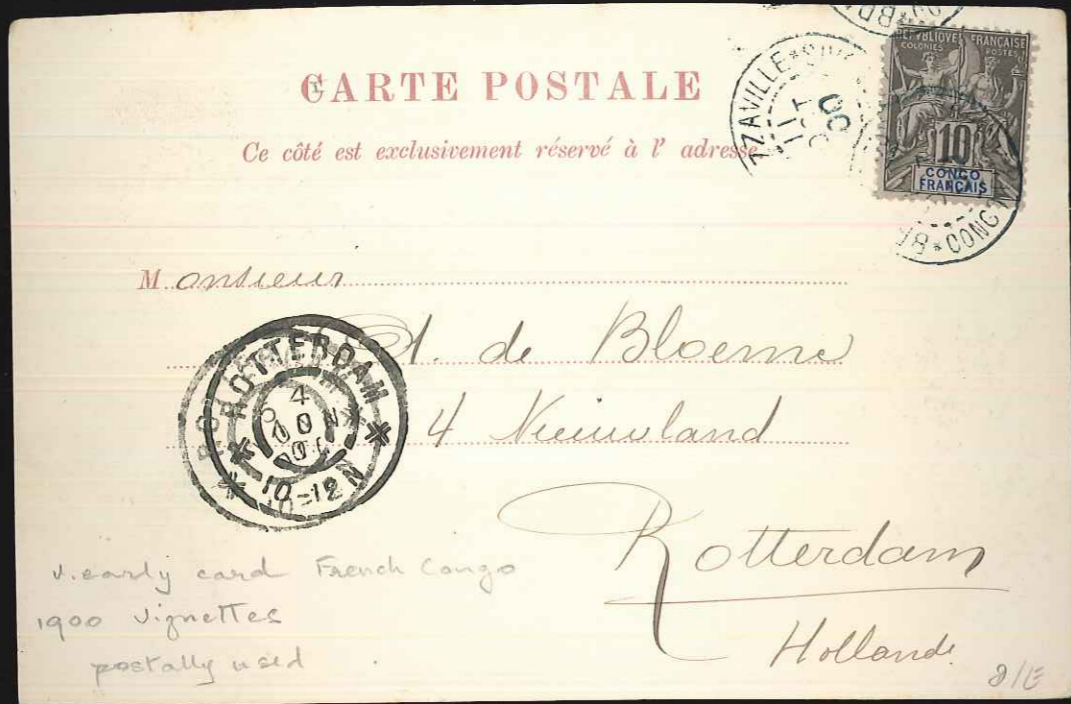 CARTE POSTALE
Ce côté est exclusivement réservé à l' adresse
RÉPUBLIQUE FRANÇAISE
COLONIES POSTES
10
CONGO
FRANÇAIS
ZZAVILLE
11
OCT
00
CONG
Monsieur
A. de Bloeme
4 Nieuwland
Rotterdam
Hollande
ROTTERDAM
4
NOV
10-12N
v. early card French Congo
1900 Vignettes
postally used